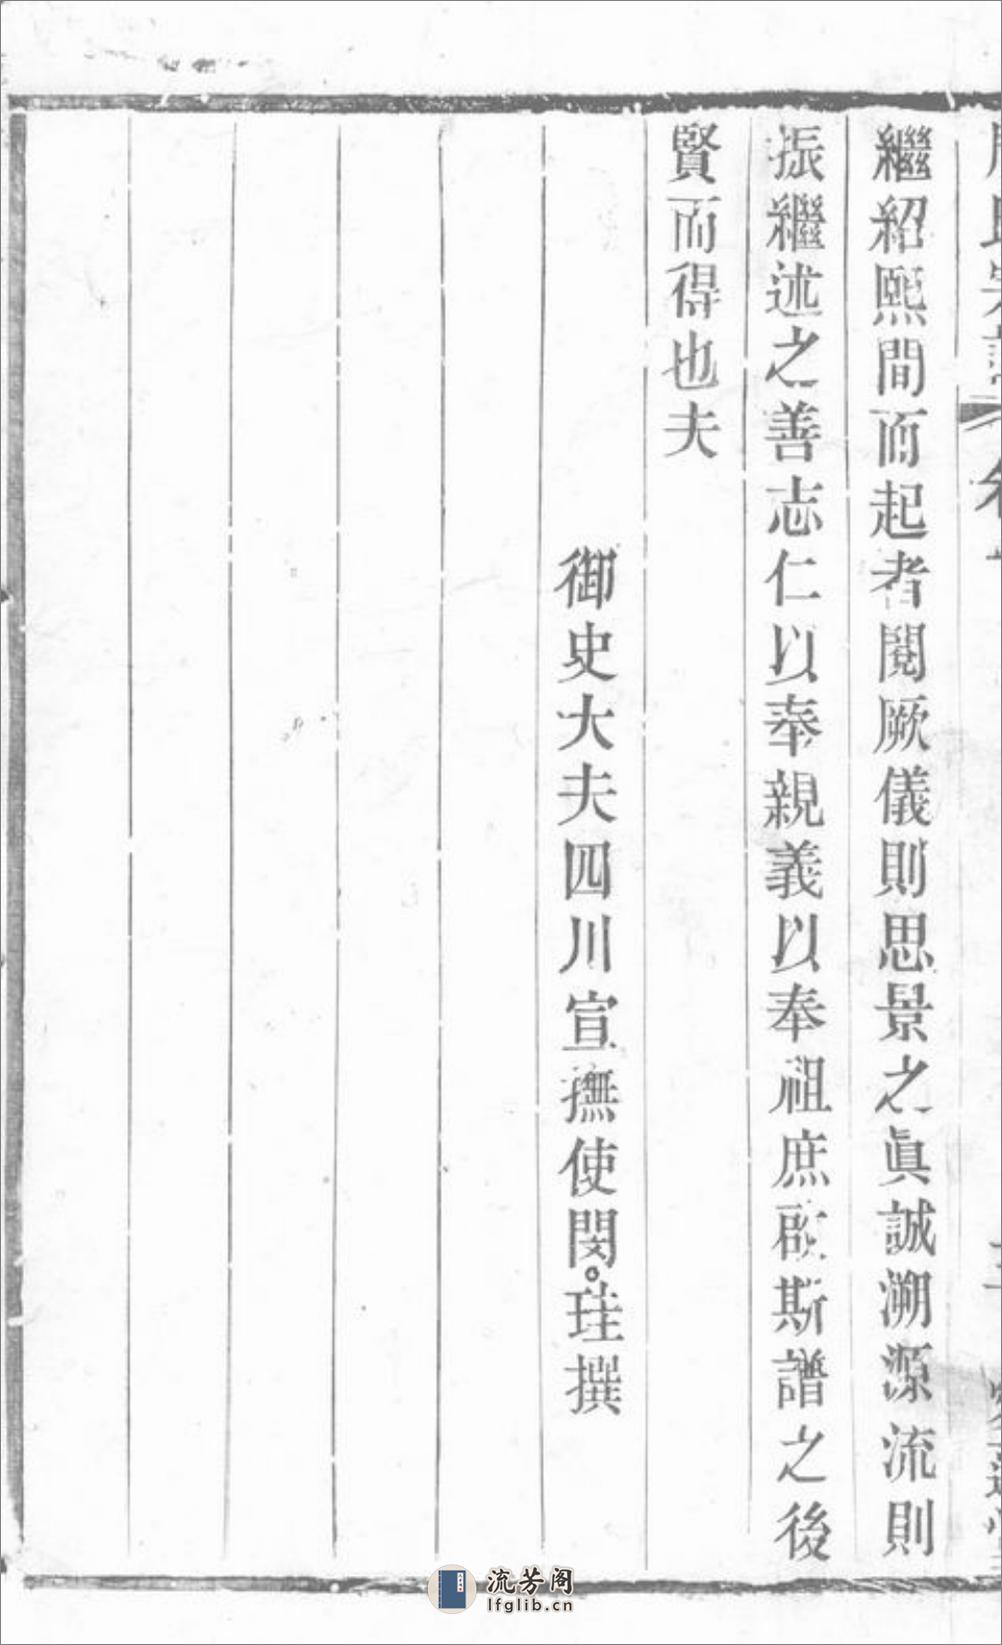 繼紹熙間而起者閱厥儀則思景之眞誠溯源流則
振繼述之善志仁以奉親義以奉祖庶啟斯譜之後
賢而得也夫
御史大夫四川宣撫使閔珪撰
流芳阁
lfglib.cn